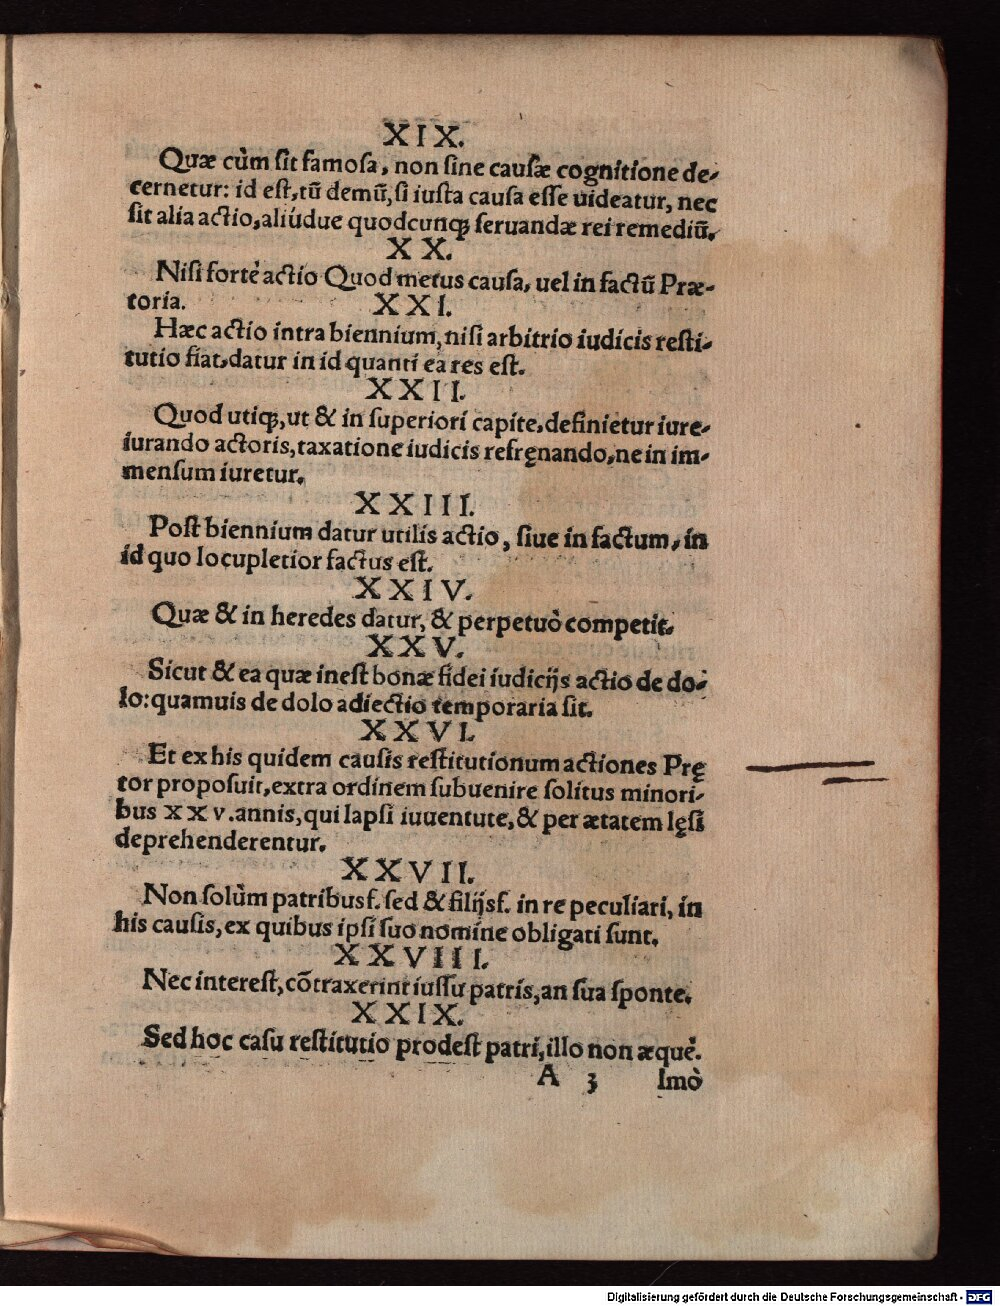 XIX.
Quæ cùm sit famosa, non sine causæ cognitione de-
cernetur: id est, tū demū, si iusta causa esse uideatur, nec
sit alia actio, aliúdue quodcunq; seruandæ rei remediū.
XX.
Nisi fortè actio Quod metus causa, uel in factū Præ-
toria.
XXI.
Hæc actio intra biennium, nisi arbitrio iudicis resti-
tutio fiat, datur in id quanti ea res est.
XXII.
Quod utiq;, ut & in superiori capite, definietur iure-
iurando actoris, taxatione iudicis refręnando, ne in im-
mensum iuretur.
XXIII.
Post biennium datur utilis actio, siue in factum, in
id quo locupletior factus est.
XXIV.
Quæ & in heredes datur, & perpetuò competit.
XXV.
Sicut & ea quæ inest bonæ fidei iudicijs actio de do-
lo: quamuis de dolo adiectio temporaria sit.
XXVI.
Et ex his quidem causis restitutionum actiones Prę
tor proposuit, extra ordinem subuenire solitus minori-
bus XXV. annis, qui lapsi iuuentute, & per ætatem lęsi
deprehenderentur.
XXVII.
Non solùm patribusf. sed & filijsf. in re peculiari, in
his causis, ex quibus ipsi suo nomine obligati sunt.
XXVIII.
Nec interest, cōtraxerint iussu patris, an sua sponte.
XXIX.
Sed hoc casu restitutio prodest patri, illo non æquè.
A 3 Imò
Digitalisierung gefördert durch die Deutsche Forschungsgemeinschaft - DFG